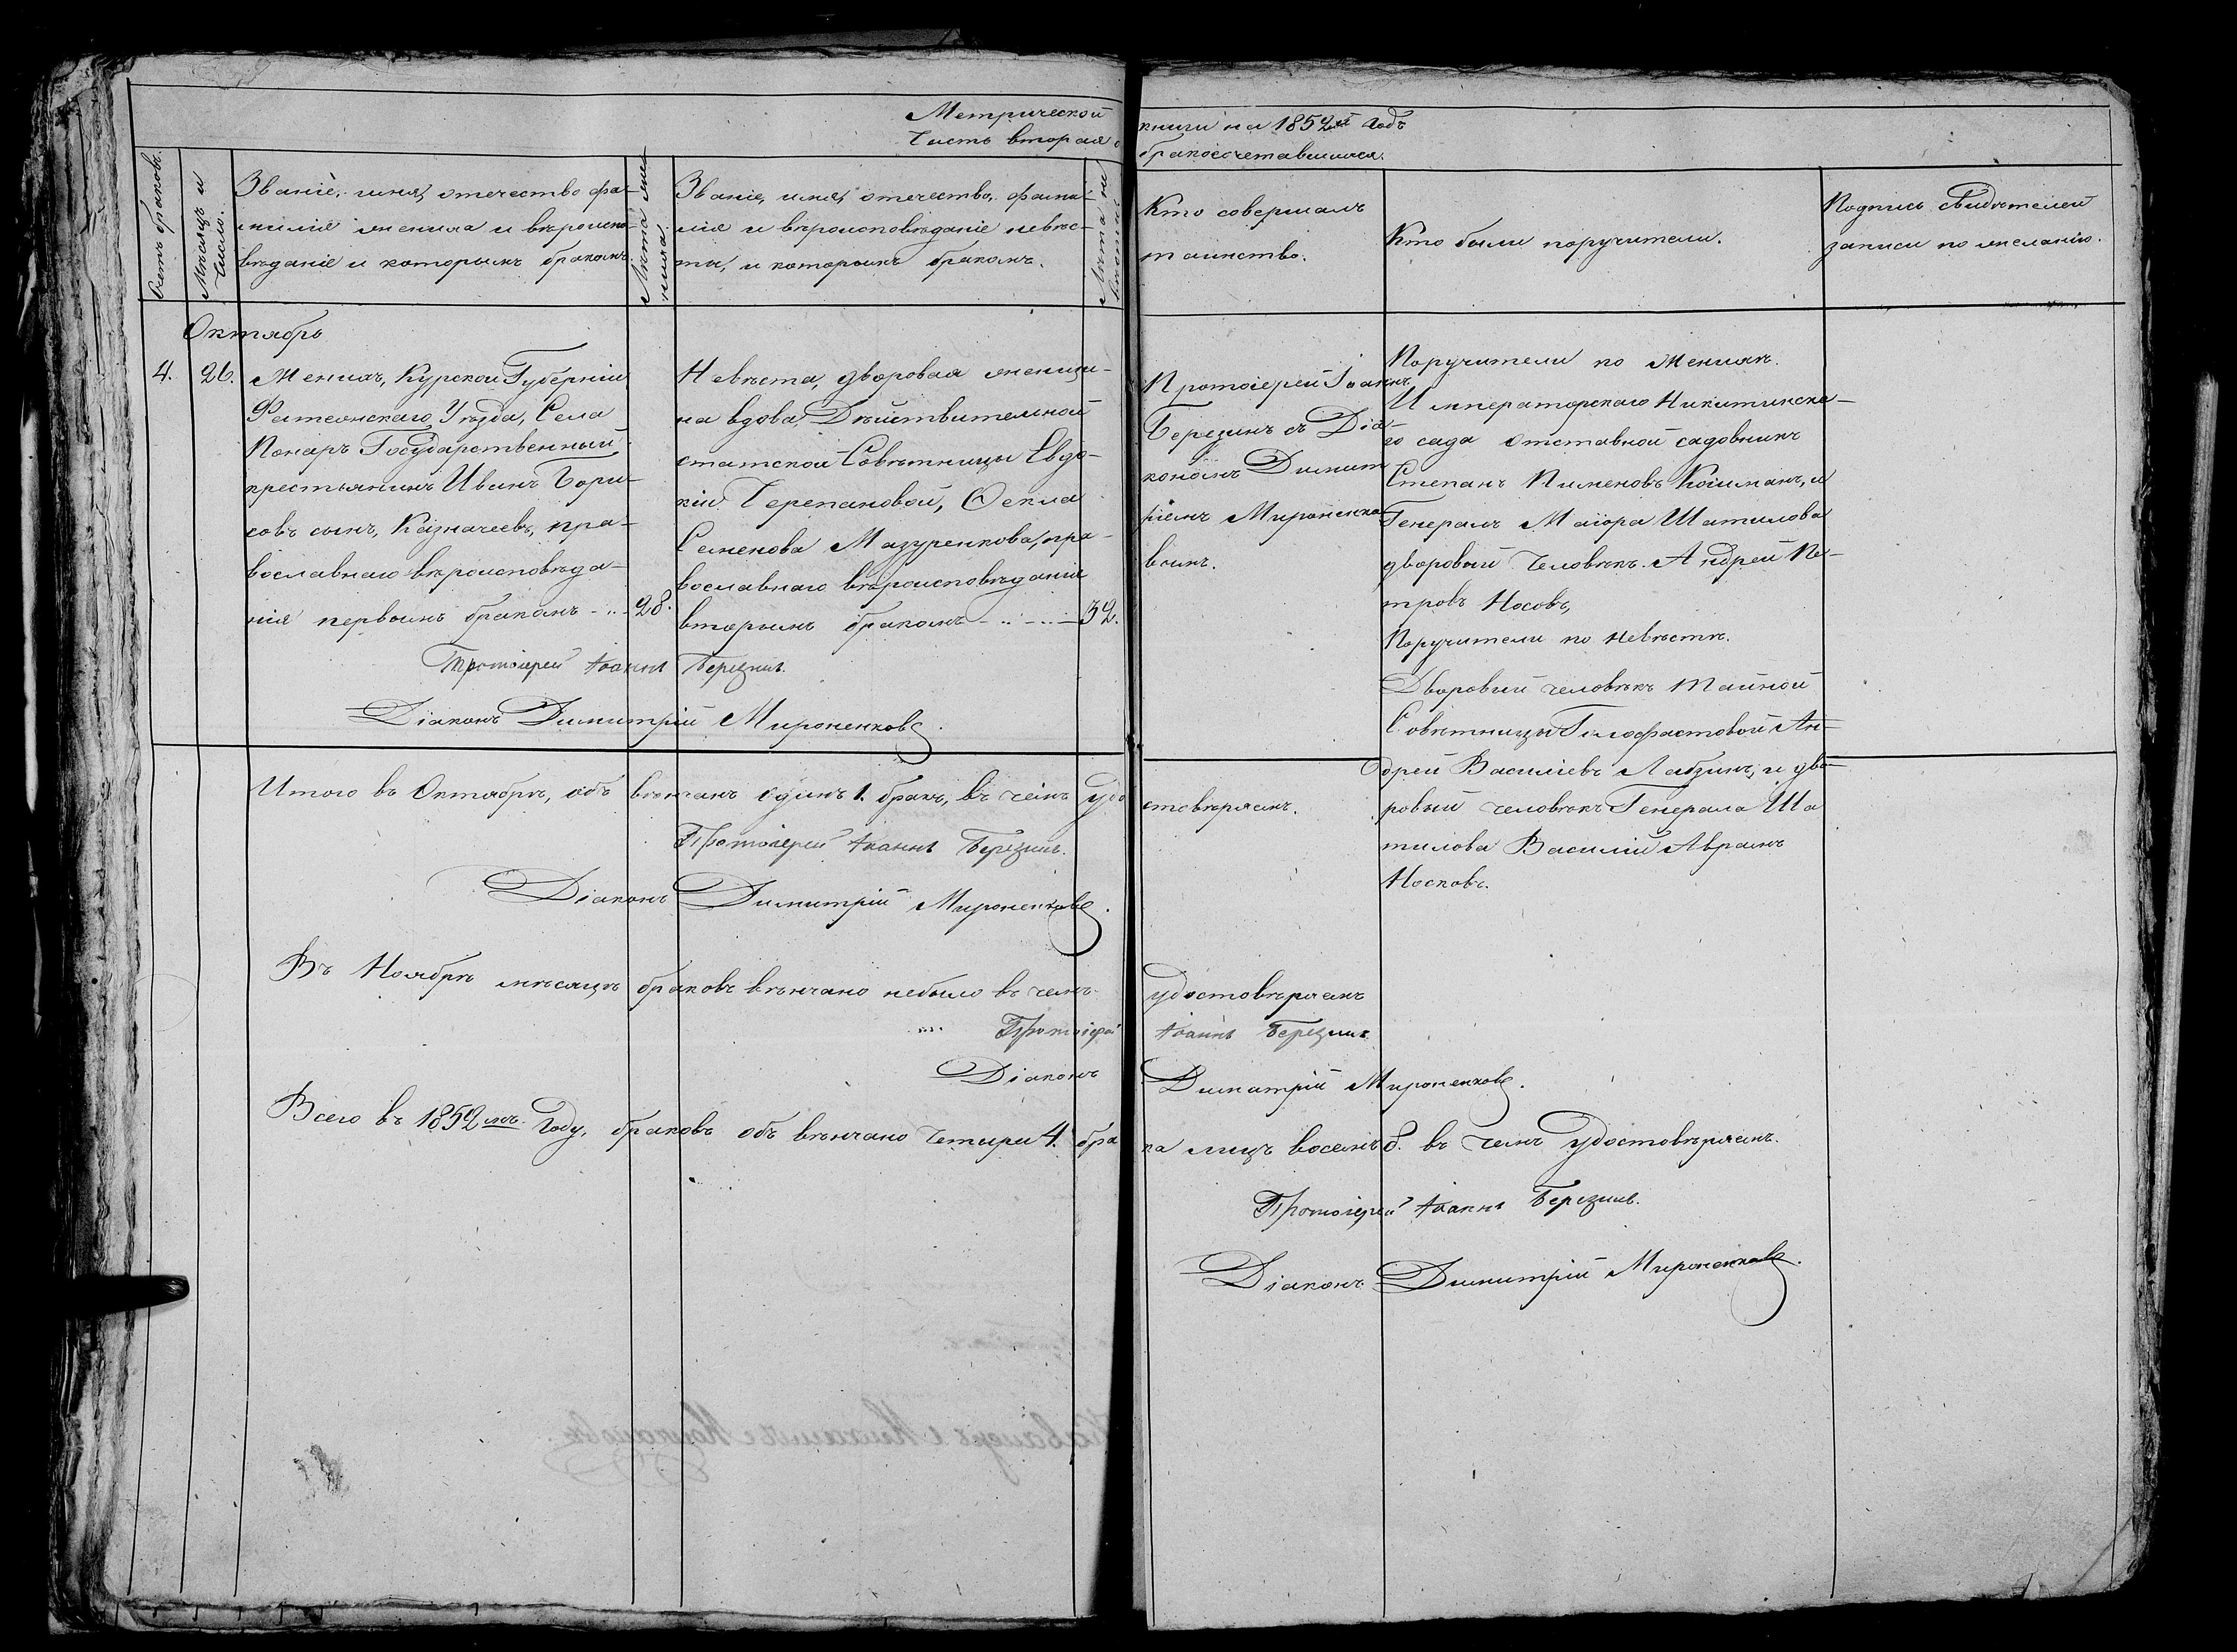 Метрической книги на 1852й Годъ
Часть вторая о бракосочетавшихся.
Счетъ браковъ.
Мѣсяцъ и
число.
Званіе, имя, отечество фа-
милія жениха и вѣроиспо-
вѣданіе и которымъ бракомъ.
Лѣта же-
ниха.
Званіе, имя, отечество, фами-
лія и вѣроисповѣданіе невѣс-
ты, и которымъ бракомъ.
Лѣта не
вѣсты
Кто совершалъ
таинство.
Кто были поручители.
Подпись свидѣтелей
записи по желанію.
Октябрь
4. 26.
Женихъ, Курской Губерніи
Фатеонскаго Уѣзда, Села
Понаръ Государственный
крестьянинъ Иванъ Бори-
совъ сынъ, Казначеевъ, пра-
вославнаго вѣроисповѣда-
нія первымъ бракомъ - .. - 28.
Невѣста, дворовая женщи-
на вдова, Дѣйствительной
статской Совѣтницы Евдо-
кіи Черепановой, Ѳекла
Семенова Мазуренкова, пра-
вославнаго вѣроисповѣданія
вторымъ бракомъ - .. - .. - 32.
Протоіерей Іоаннъ
Березинъ съ Діа-
кономъ Димит
ріемъ Мироненко
вымъ.
Поручители по женихѣ.
Императорскаго Никитинска-
го сада отставной садовникъ
Степанъ Пименовъ Кошманъ, и
Генералъ Маіора Шатилова
дворовый человѣкъ Андрей Пе-
тровъ Носовъ,
Поручители по невѣстѣ.
Дворовый человѣкъ тайной
Совѣтницы Гилофастовой Ан-
дрей Василіевъ Лабзинъ, и дво-
ровый человѣкъ Генерала Ша
тилова Василій Аврамъ
Носковъ.
Протоіерей Іоаннъ Березинъ.
Діаконъ Димитрій Мироненковъ.
Итого въ Октябрѣ, объ вѣнчанъ одинъ 1. бракъ, въ чемъ удо стовѣряемъ.
Протоіерей Іоаннъ Березинъ.
Діаконъ Димитрій Мироненковъ.
Въ Ноябрѣ мѣсяцѣ браковъ вѣнчано небыло въ чемъ удостовѣряемъ
Протоіерей Іоаннъ Березинъ
Діаконъ Димитрій Мироненковъ.
Всего въ 1852мъ Году, браковъ объ вѣнчано четыри 4. бра ка лицъ восемь 8. въ чемъ удостовѣряемъ.
Протоіерей Іоаннъ Березинъ.
Діаконъ Димитрій Мироненковъ.